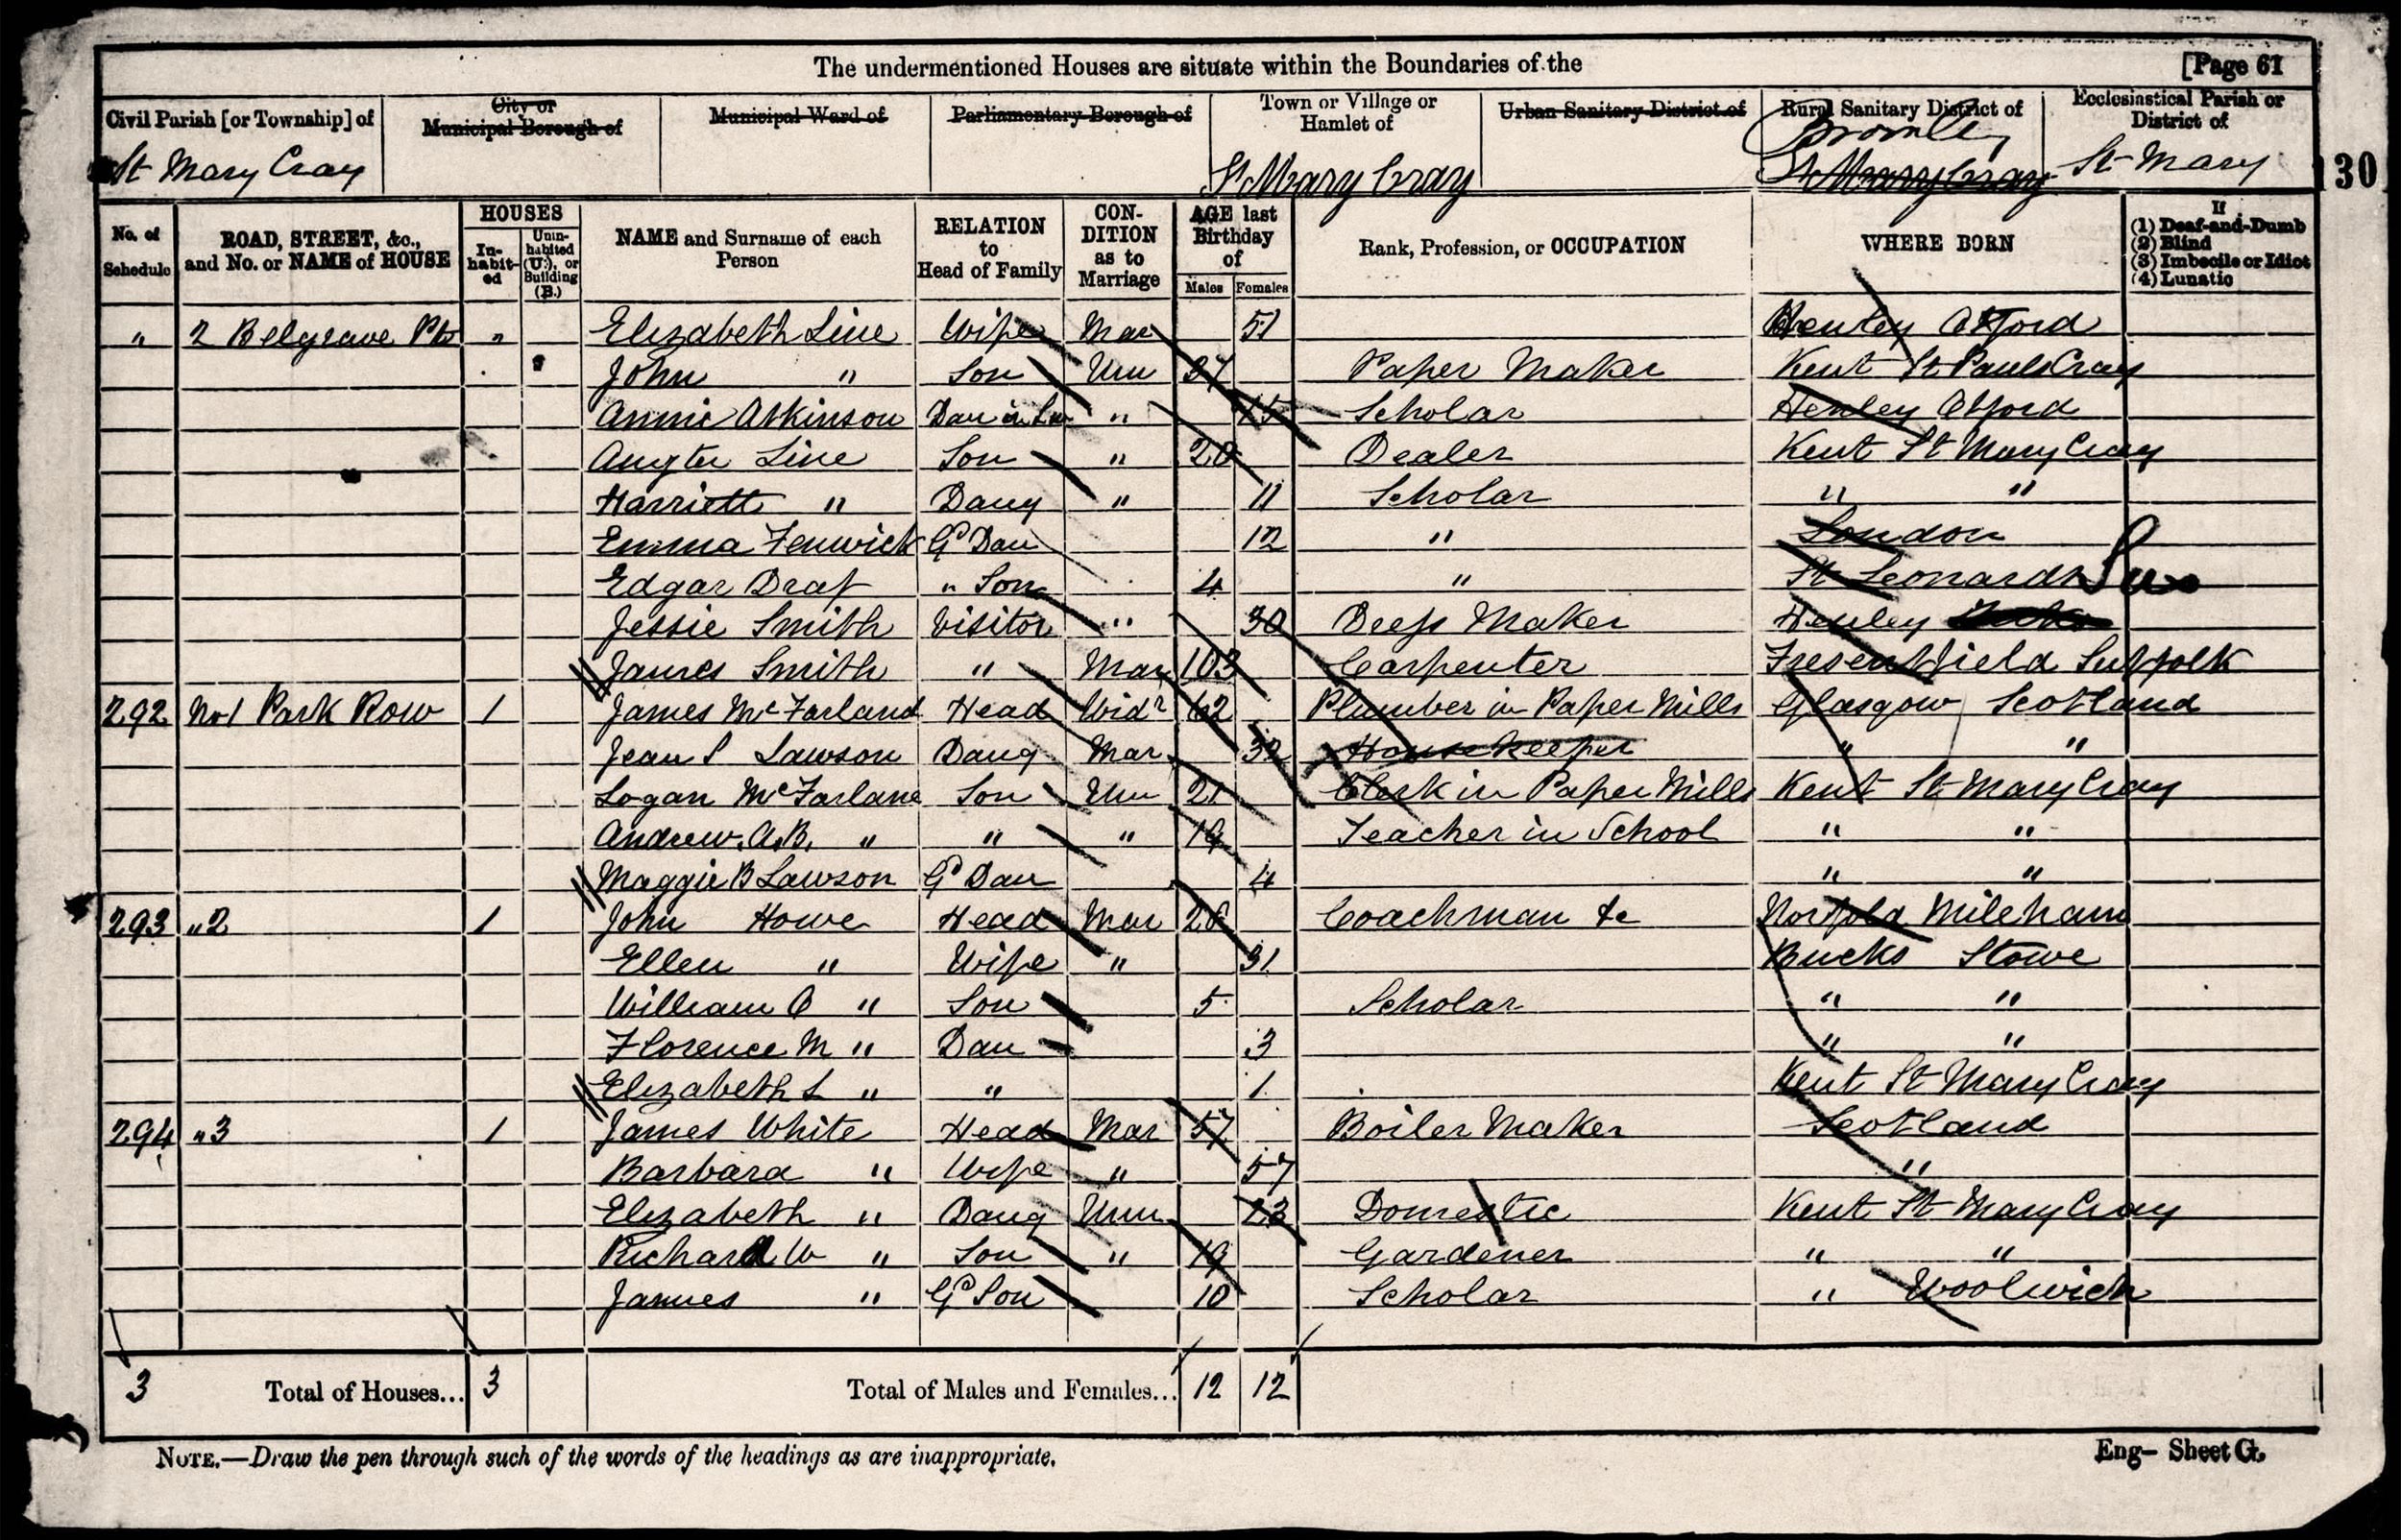 The undermentioned Houses are situate within the Boundaries of the [Page 61
Civil Parish [or Township] of City or Municipal Borough of Municipal Ward of Parliamentary Borough of Town or Village or Hamlet of Urban Sanitary District of Rural Sanitary District of Ecclesiastical Parish or District of
St Mary Cray St Mary Cray Bromley St Mary Cray St Mary 130
No. of Schedule ROAD, STREET, &c., and No. or NAME of HOUSE HOUSES Inhabited Uninhabited (U.), or Building (B.) NAME and Surname of each Person RELATION to Head of Family CONDITION as to Marriage AGE last Birthday of Males Females Rank, Profession, or OCCUPATION WHERE BORN If (1) Deaf-and-Dumb (2) Blind (3) Imbecile or Idiot (4) Lunatic
" 2 Belgrave " Elizabeth Line Wife Mar 51 Henley Oxford
John " Son Un Paper Maker Kent St Pauls Cray
Annie Atkinson Dau in Law " 15 Scholar Henley Oxford
Line Son " 20 Dealer Kent St Mary Cray
Harriett " Daug " 11 Scholar " "
Emma Fenwick Gd Dau 12 " London
Edgar " Son 4 " St Leonards Sus
Jessie Smith Visitor " 30 Dress Maker Henley
James Smith " Mar 103 Carpenter Suffolk
292 No 1 Park Row 1 James McFarland Head Widr 62 Plumber in Paper Mills Glasgow Scotland
Jean S Lawson Daug Mar 32 Housekeeper " "
Logan McFarlane Son Un 21 Clerk in Paper Mills Kent St Mary Cray
Andrew. A.B. " " " 19 Teacher in School " "
Maggie B Lawson Gd Dau 4 " "
293 " 2 1 John Howe Head Mar Coachman &c Norfolk Mileham
Ellen " Wife " 31 Bucks Stowe
William " Son 5 Scholar " "
Florence M " Dau 3 " "
Elizabeth L " " 1 Kent St Mary Cray
294 " 3 1 James White Head Mar 57 Boiler Maker Scotland
Barbara " Wife " 57 "
Elizabeth " Daug Unm 23 Domestic Kent St Mary Cray
Richard W " Son " 19 Gardener " "
James " Gd Son 10 Scholar " Woolwich
3 Total of Houses... 3 Total of Males and Females... 12 12
NOTE.—Draw the pen through such of the words of the headings as are inappropriate.
Eng- Sheet G.